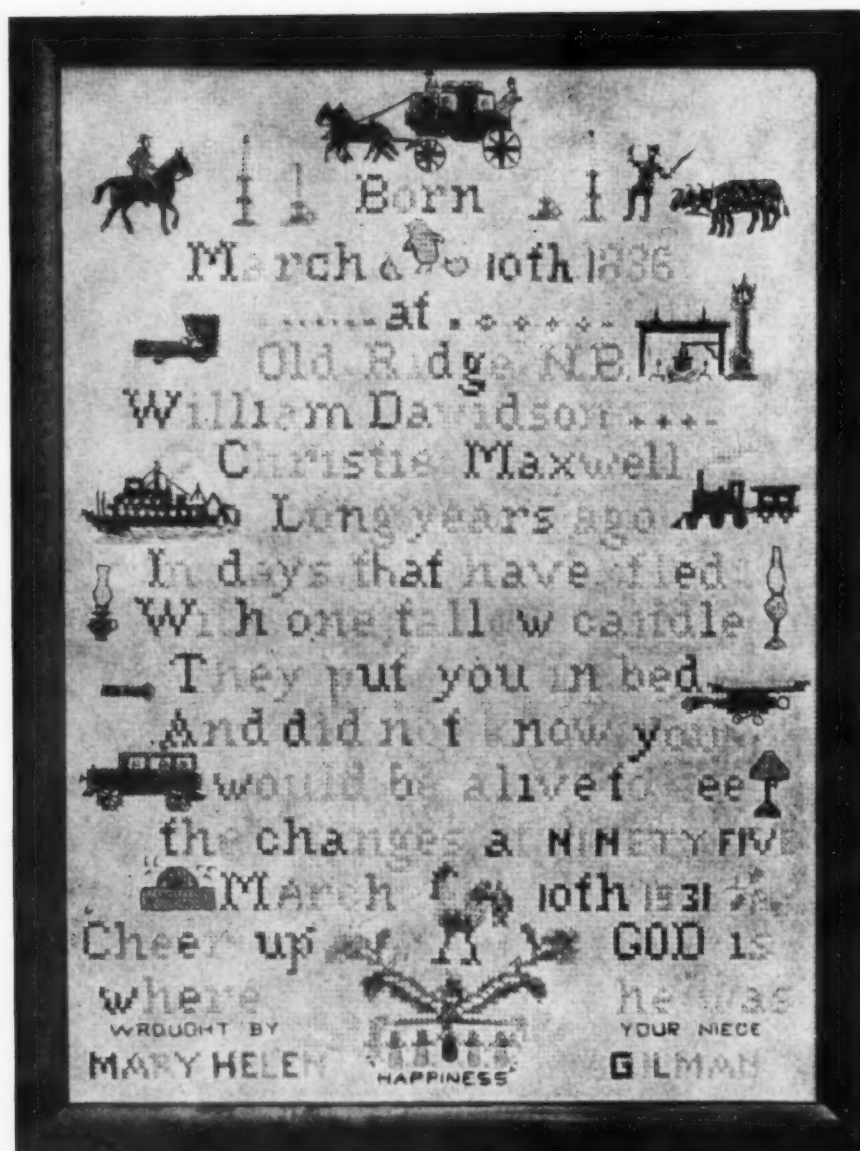 Born
March 10th 1836
at
Old Ridge N.B.
William Davidson
Christie Maxwell
Long years ago
In days that have fled
With one tallow candle
They put you in bed
And did not know you
would be alive to see
the changes at NINETY FIVE
March 10th 1931
Cheer up GOD is
where he was
WROUGHT BY YOUR NIECE
MARY HELEN GILMAN
HAPPINESS